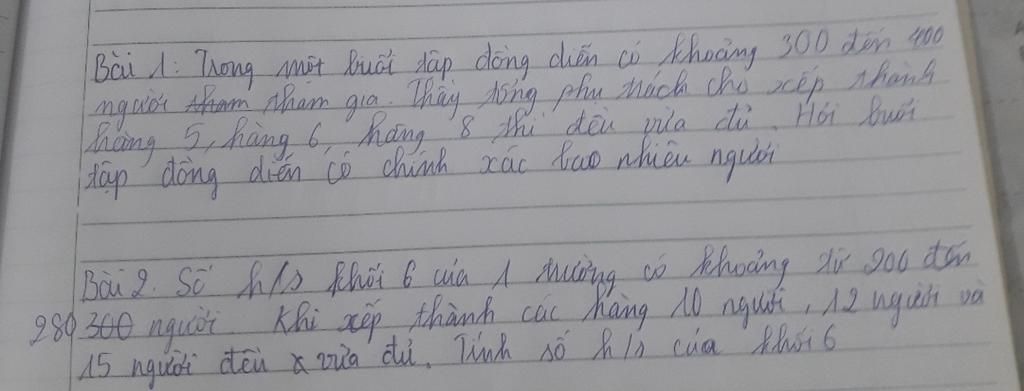 Bài 1: Trong một buổi tập đồng diễn có khoảng 300 đến 400
người tham tham gia. Thầy tổng phụ trách cho xếp thành
hàng 5, hàng 6, hàng 8 thì đều vừa đủ. Hỏi buổi
tập đồng diễn có chính xác bao nhiêu người
Bài 2. Số h/s khối 6 của 1 trường có khoảng từ 200 đến
280 300 người. Khi xếp thành các hàng 10 người, 12 người và
15 người đều x vừa đủ. Tính số h/s của khối 6